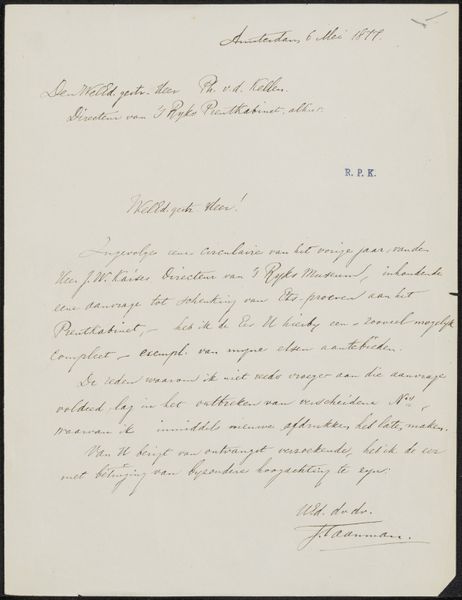 Amsterdam, 6 Mei 1879.
Den WelEd. gestr. Heer Ph. v. d. Kellen.
Directeur van 's Ryks Prentkabinet, alhier.
R. P. K.
WelEd. gestr. Heer!
Ingevolge eene circulaire van het vorige jaar, van den
Heer J. W. Kaiser Directeur van 's Ryks Museum, inhoudende
eene aanvrage tot schenking van Ets-proeven aan het
Prentkabinet, — heb ik de Eer U hierby een — zooveel mogelyk
compleet — exempl. van myne etsen aantebieden.
De reden waarom ik niet reeds vroeger aan die aanvrage
voldeed lag in het ontbreken van verscheidene Nos,
waarvan ik inmiddels nieuwe afdrukken heb laten maken.
Van U berigt van ontvangst verzoekende, heb ik de eer
met betuiging van byzondere hoogachting te zyn:
UEd. dw. dr.
J. Taanman.